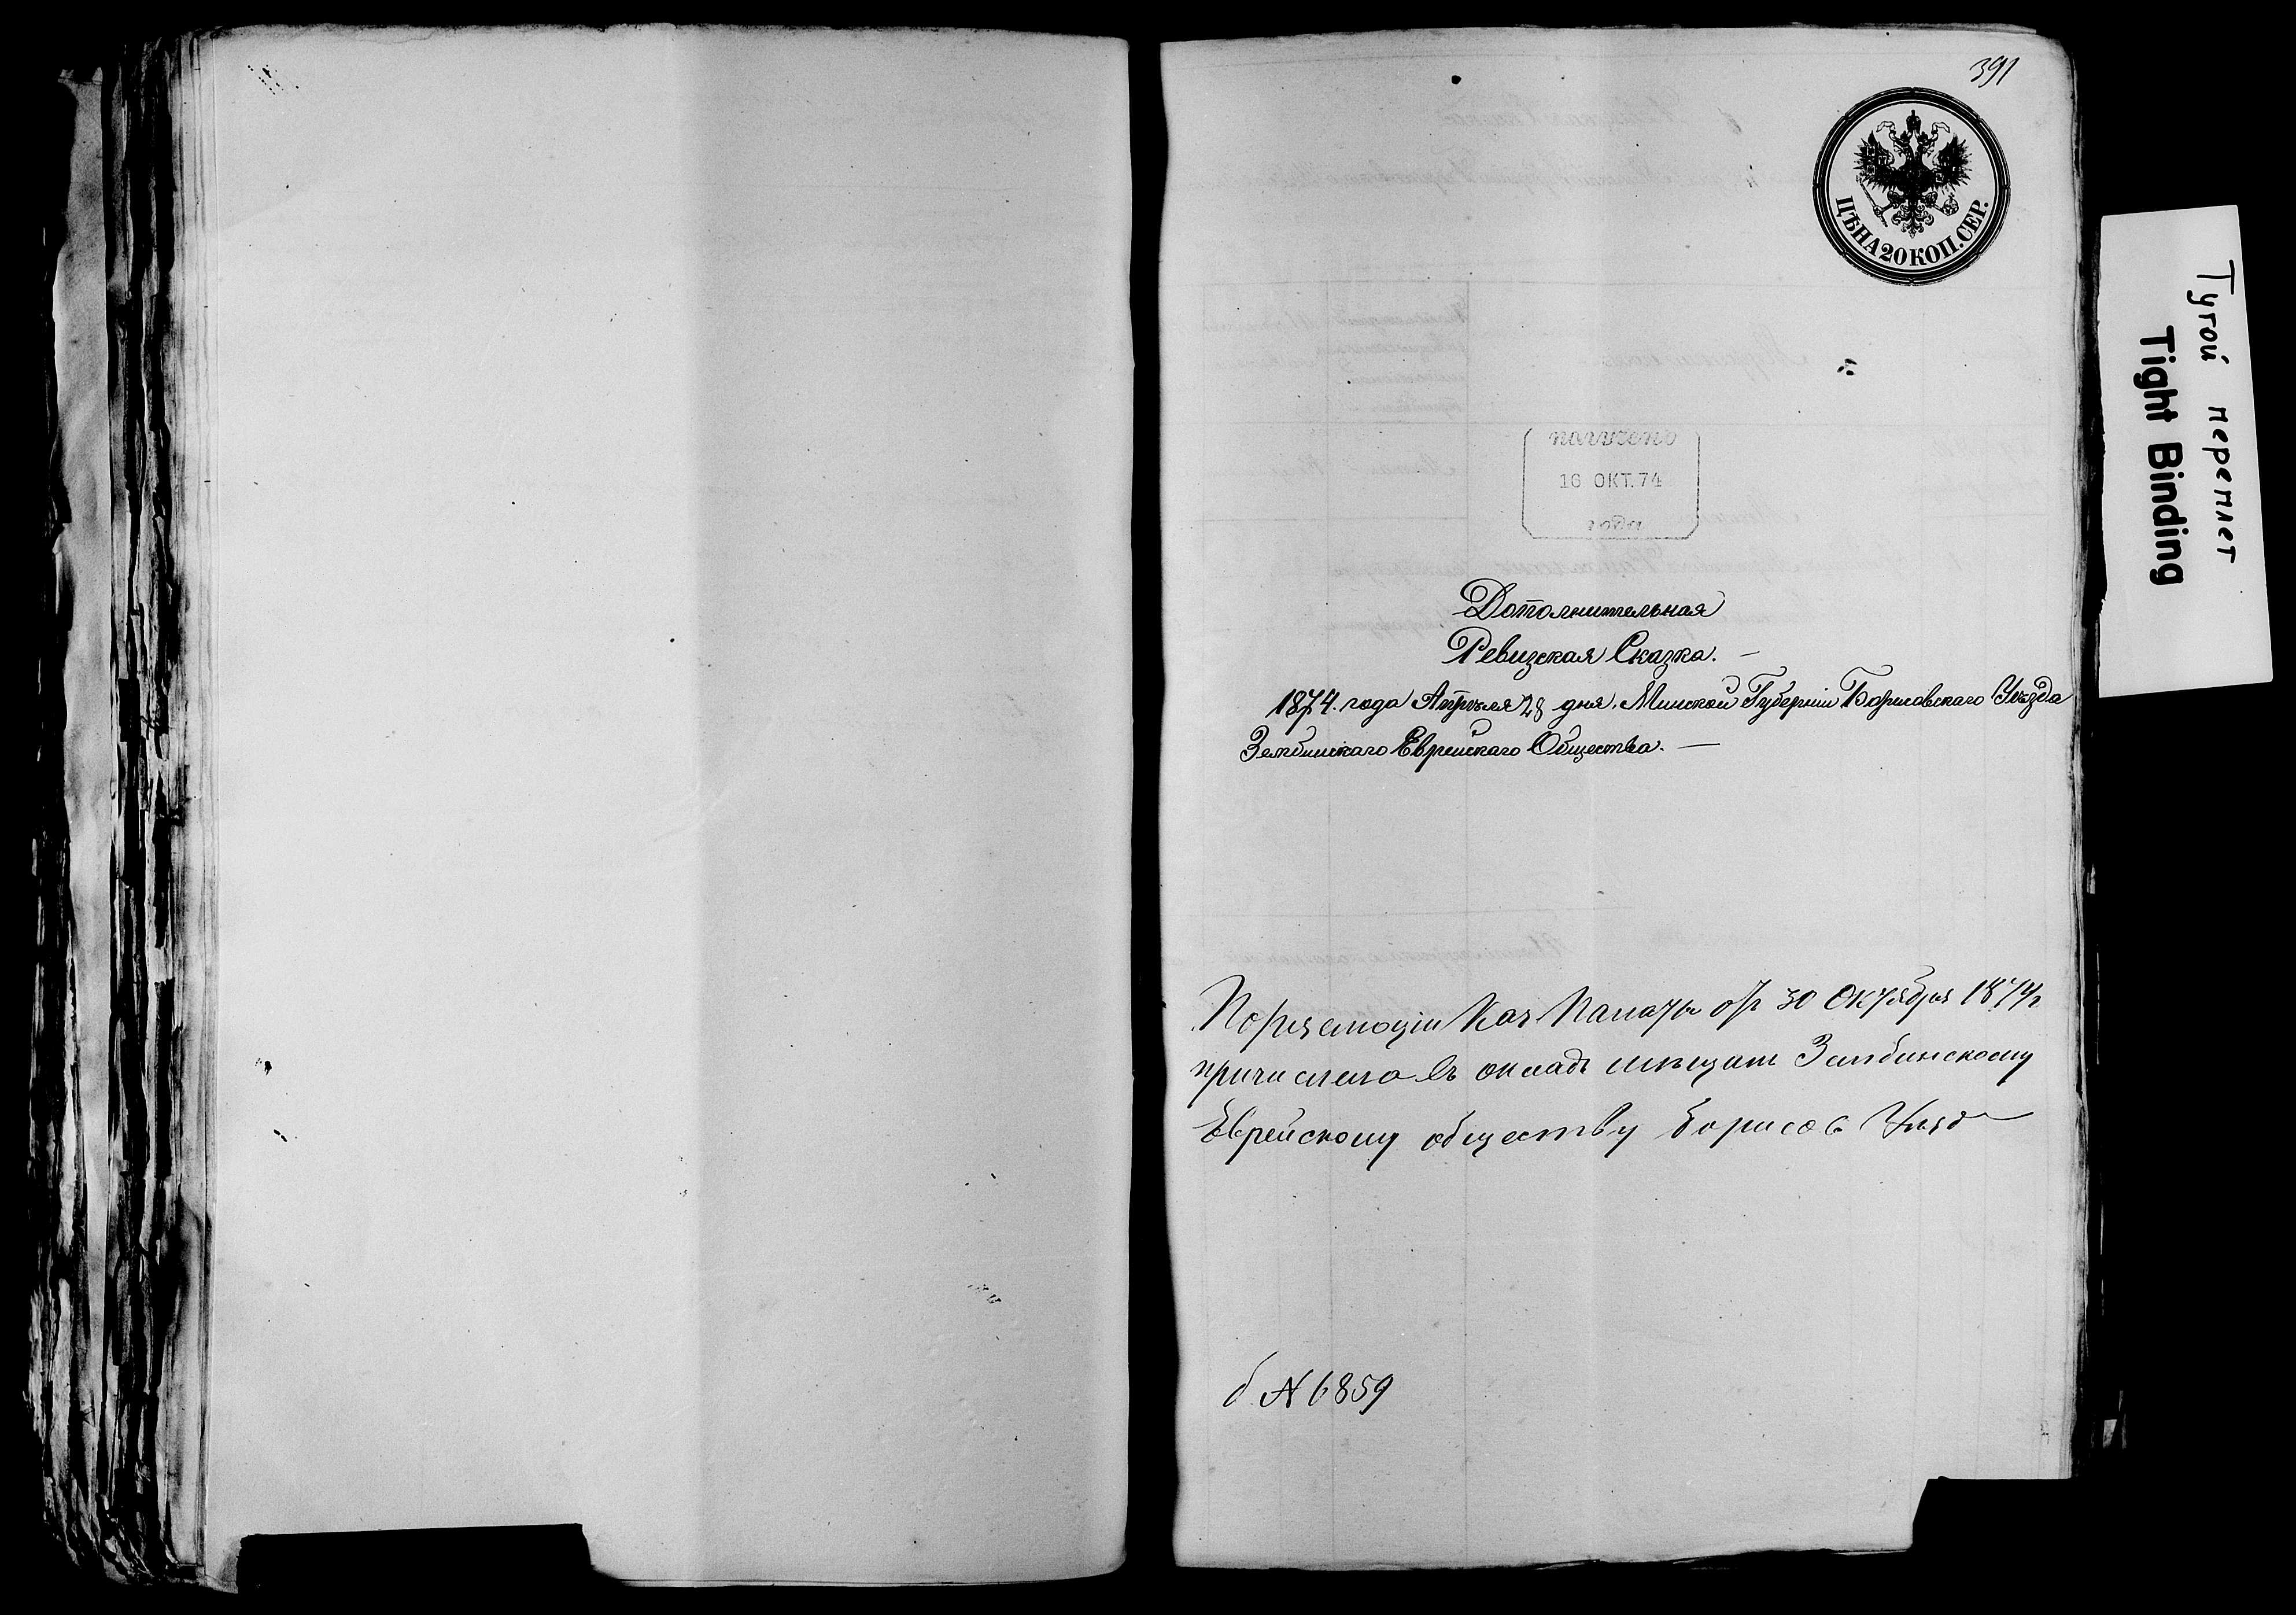 391
ЦѢНА 20 КОП. СЕР.
получено
16 ОКТ. 74
года
Дополнительная
Ревизская Сказка. —
1874. года Апрѣля 28 дня. Минской Губерніи Борисовскаго Уѣзда
Зембинскаго Еврейскаго Общества. —
По резолюціи Каз. Палаты отъ 30 Октября 1874 г
причислено въ окладъ мѣщанъ Зембинскому
Еврейскому обществу Борисов Уѣзда
б. № 6859
Тугой переплет
Tight Binding